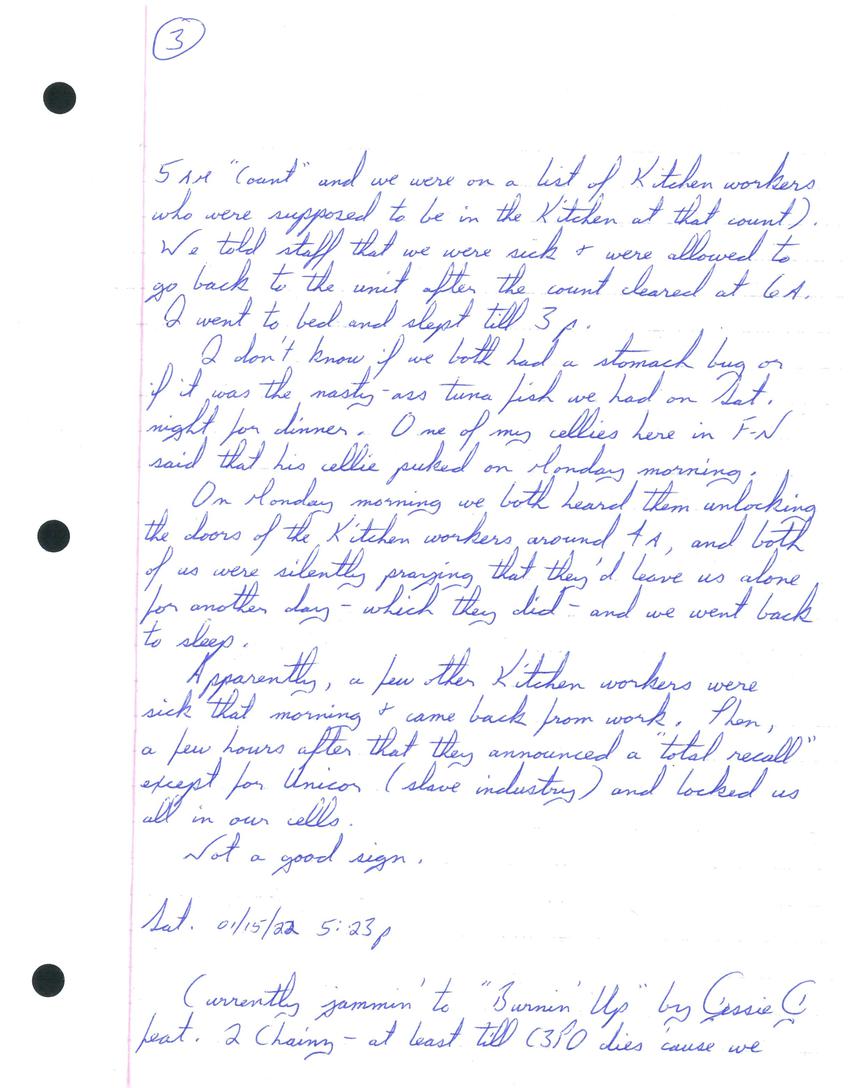 3
5 AM "Count" and we were on a list of Kitchen workers
who were supposed to be in the Kitchen at that count).
We told staff that we were sick + were allowed to
go back to the unit after the count cleared at 6A.
I went to bed and slept till 3p.
I don't know if we both had a stomach bug or
if it was the nasty-ass tuna fish we had on Sat.
night for dinner. One of my cellies here in F-N
said that his cellie puked on Monday morning.
On Monday morning we both heard them unlocking
the doors of the Kitchen workers around 4A, and both
of us were silently praying that they'd leave us alone
for another day - which they did - and we went back
to sleep.
Apparently, a few other Kitchen workers were
sick that morning + came back from work. Then,
a few hours after that they announced a "total recall"
except for Unicor (slave industry) and locked us
all in our cells.
Not a good sign.
Sat. 01/15/22 5:23p
Currently jammin' to "Burnin' Up" by Jessie J
feat. 2 Chainz - at least till C3PO dies 'cause we